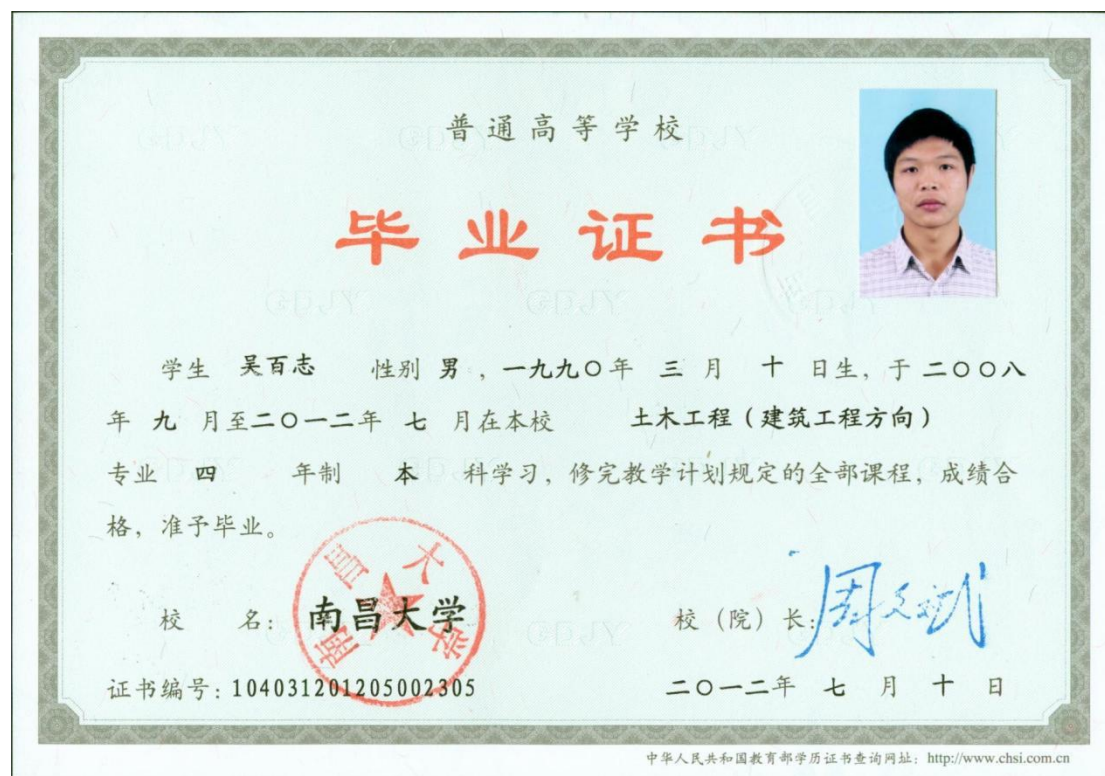 普通高等学校
毕业证书
学生 吴百志 性别 男，一九九〇年 三 月 十 日生，于 二〇〇八
年 九 月至二〇一二年 七 月在本校 土木工程（建筑工程方向）
专业 四 年制 本 科学习，修完教学计划规定的全部课程，成绩合
格，准予毕业。
南昌大学
校 名：南昌大学 校（院）长：周文斌
证书编号：104031201205002305 二〇一二年 七 月 十 日
中华人民共和国教育部学历证书查询网址：http://www.chsi.com.cn